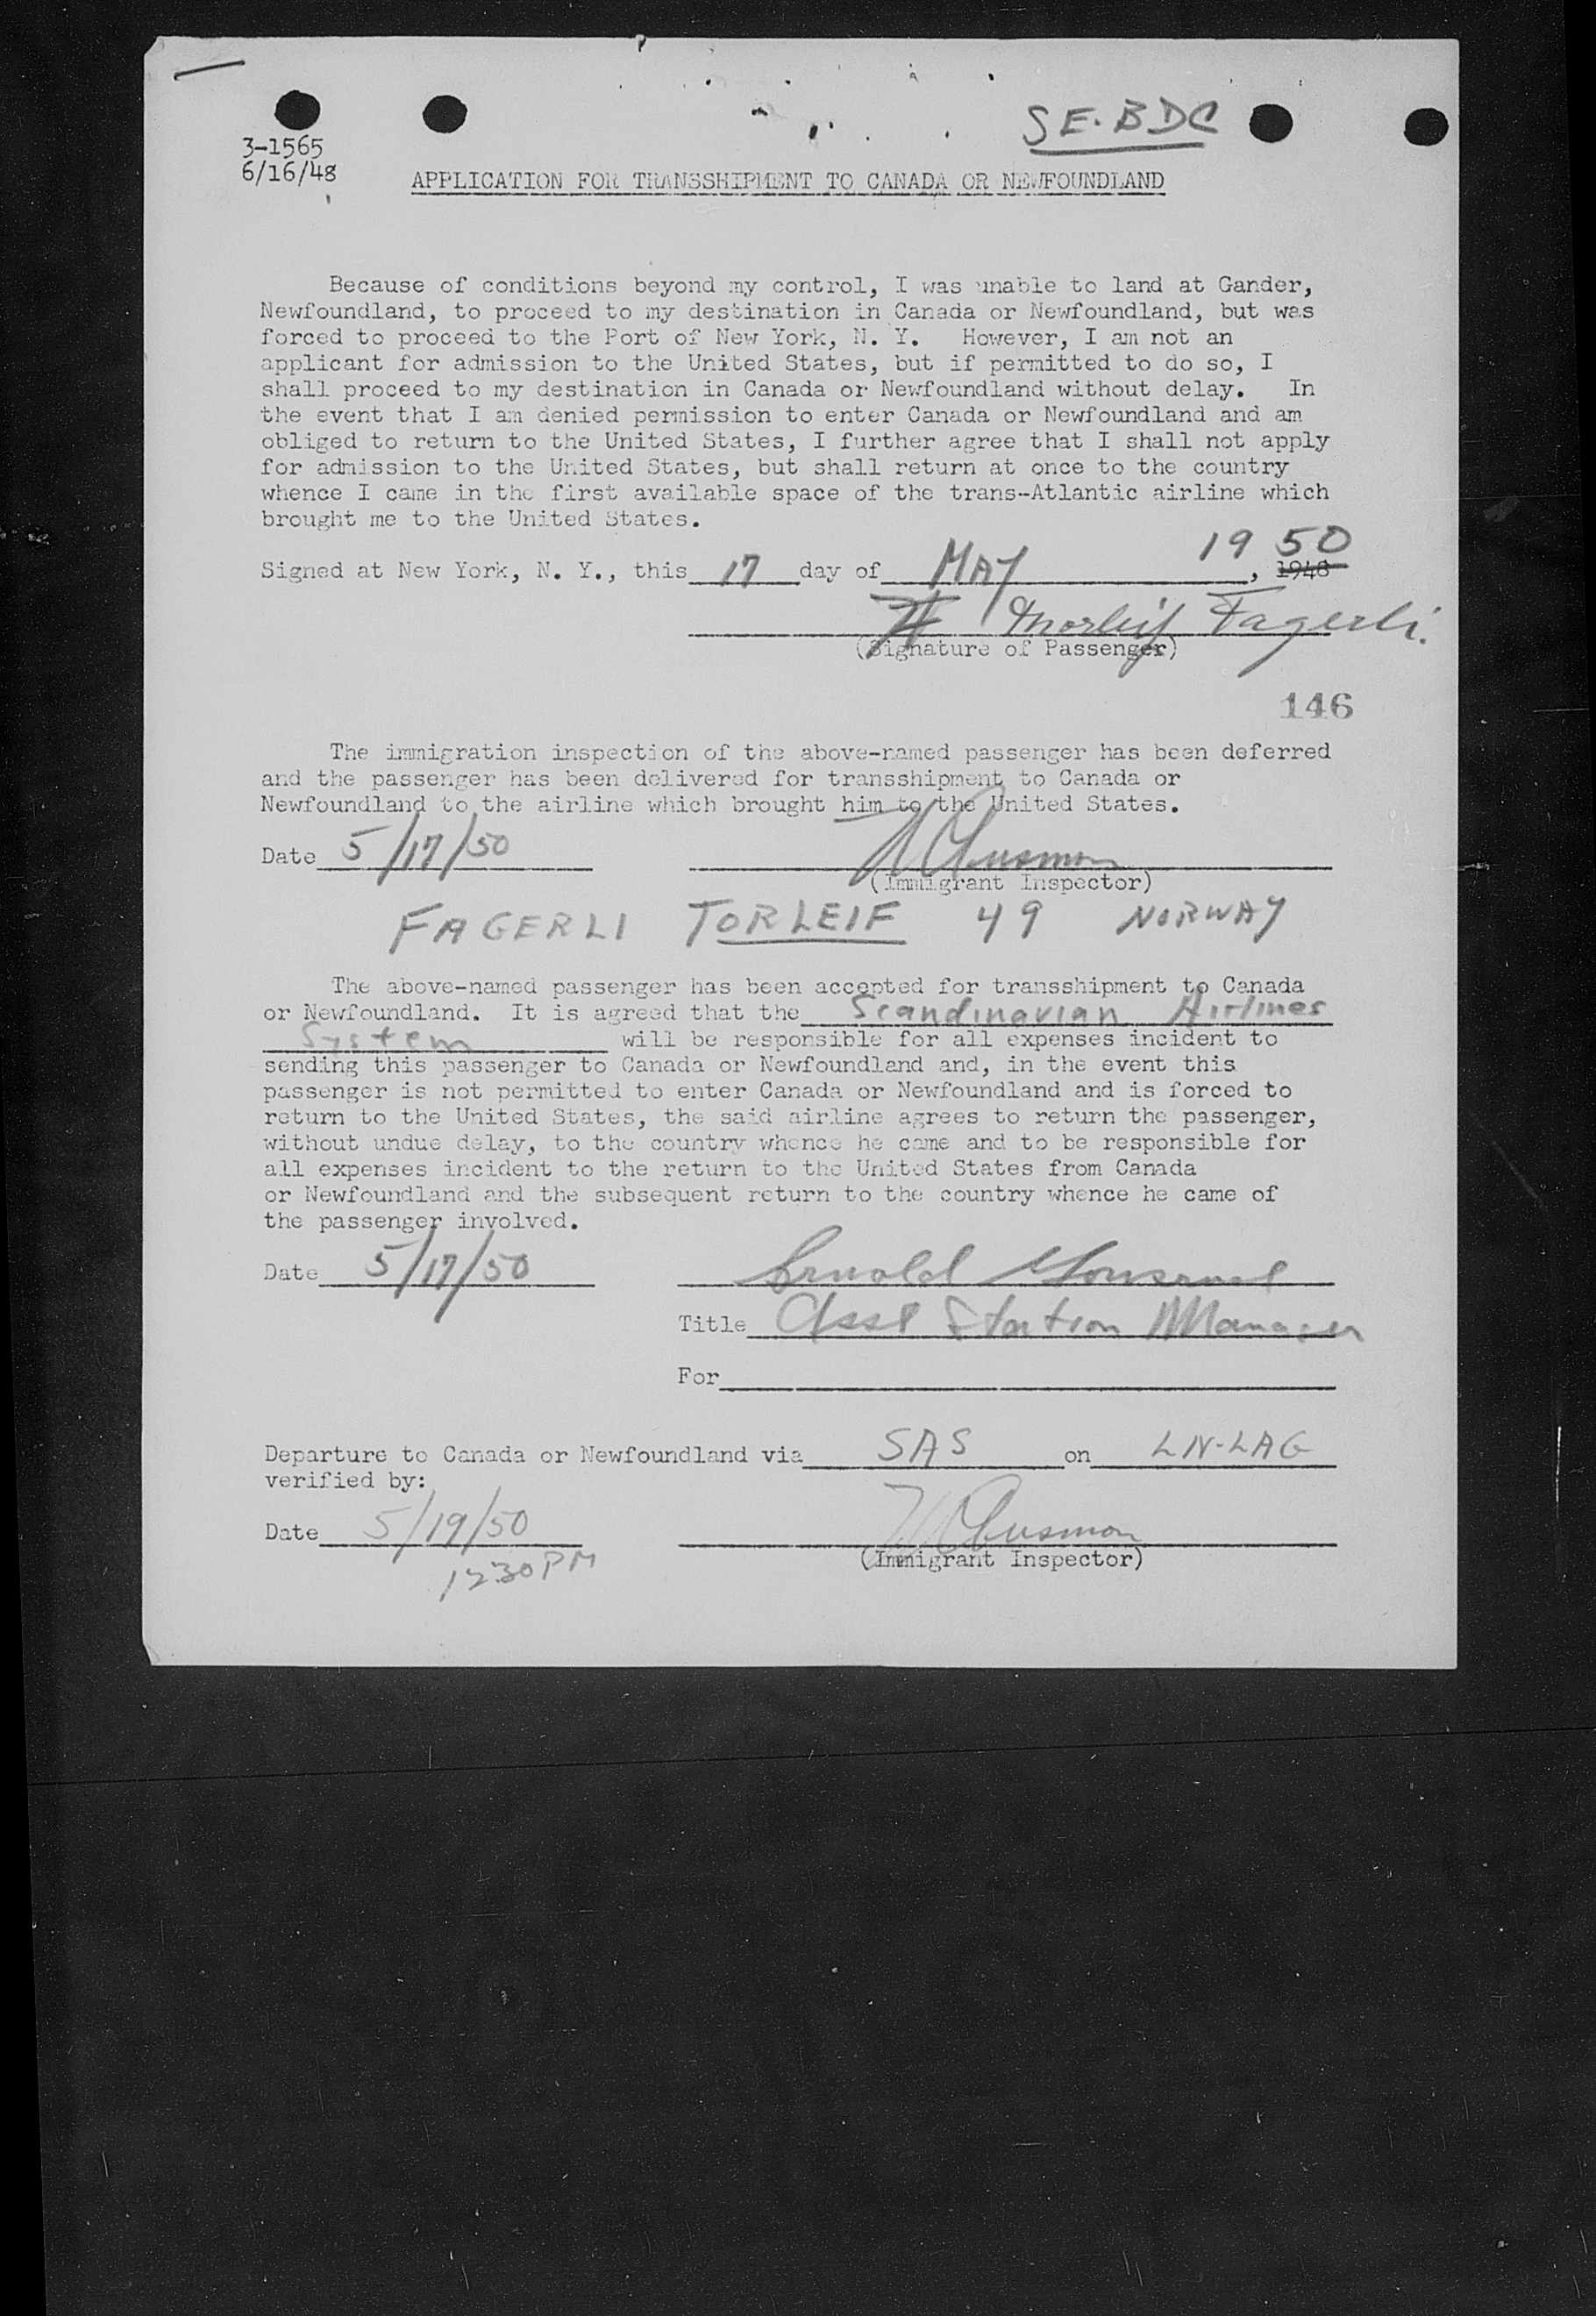 SE-BDC
3-1565
6/16/48
APPLICATION FOR TRANSSHIPMENT TO CANADA OR NEWFOUNDLAND
Because of conditions beyond my control, I was unable to land at Gander,
Newfoundland, to proceed to my destination in Canada or Newfoundland, but was
forced to proceed to the Port of New York, N. Y. However, I am not an
applicant for admission to the United States, but if permitted to do so, I
shall proceed to my destination in Canada or Newfoundland without delay. In
the event that I am denied permission to enter Canada or Newfoundland and am
obliged to return to the United States, I further agree that I shall not apply
for admission to the United States, but shall return at once to the country
whence I came in the first available space of the trans-Atlantic airline which
brought me to the United States.
19 50
Signed at New York, N. Y., this 17 day of MAY, 1948
Thorleif Fagerli.
(Signature of Passenger)
146
The immigration inspection of the above-named passenger has been deferred
and the passenger has been delivered for transshipment to Canada or
Newfoundland to the airline which brought him to the United States.
Date 5/17/50
(Immigrant Inspector)
FAGERLI TORLEIF 49 NORWAY
The above-named passenger has been accepted for transshipment to Canada
or Newfoundland. It is agreed that the Scandinavian Airlines
System will be responsible for all expenses incident to
sending this passenger to Canada or Newfoundland and, in the event this
passenger is not permitted to enter Canada or Newfoundland and is forced to
return to the United States, the said airline agrees to return the passenger,
without undue delay, to the country whence he came and to be responsible for
all expenses incident to the return to the United States from Canada
or Newfoundland and the subsequent return to the country whence he came of
the passenger involved.
Date 5/17/50 Arnold
Title Asst Station Manager
For
Departure to Canada or Newfoundland via SAS on LN-LAG
verified by:
Date 5/19/50
1230 PM
(Immigrant Inspector)